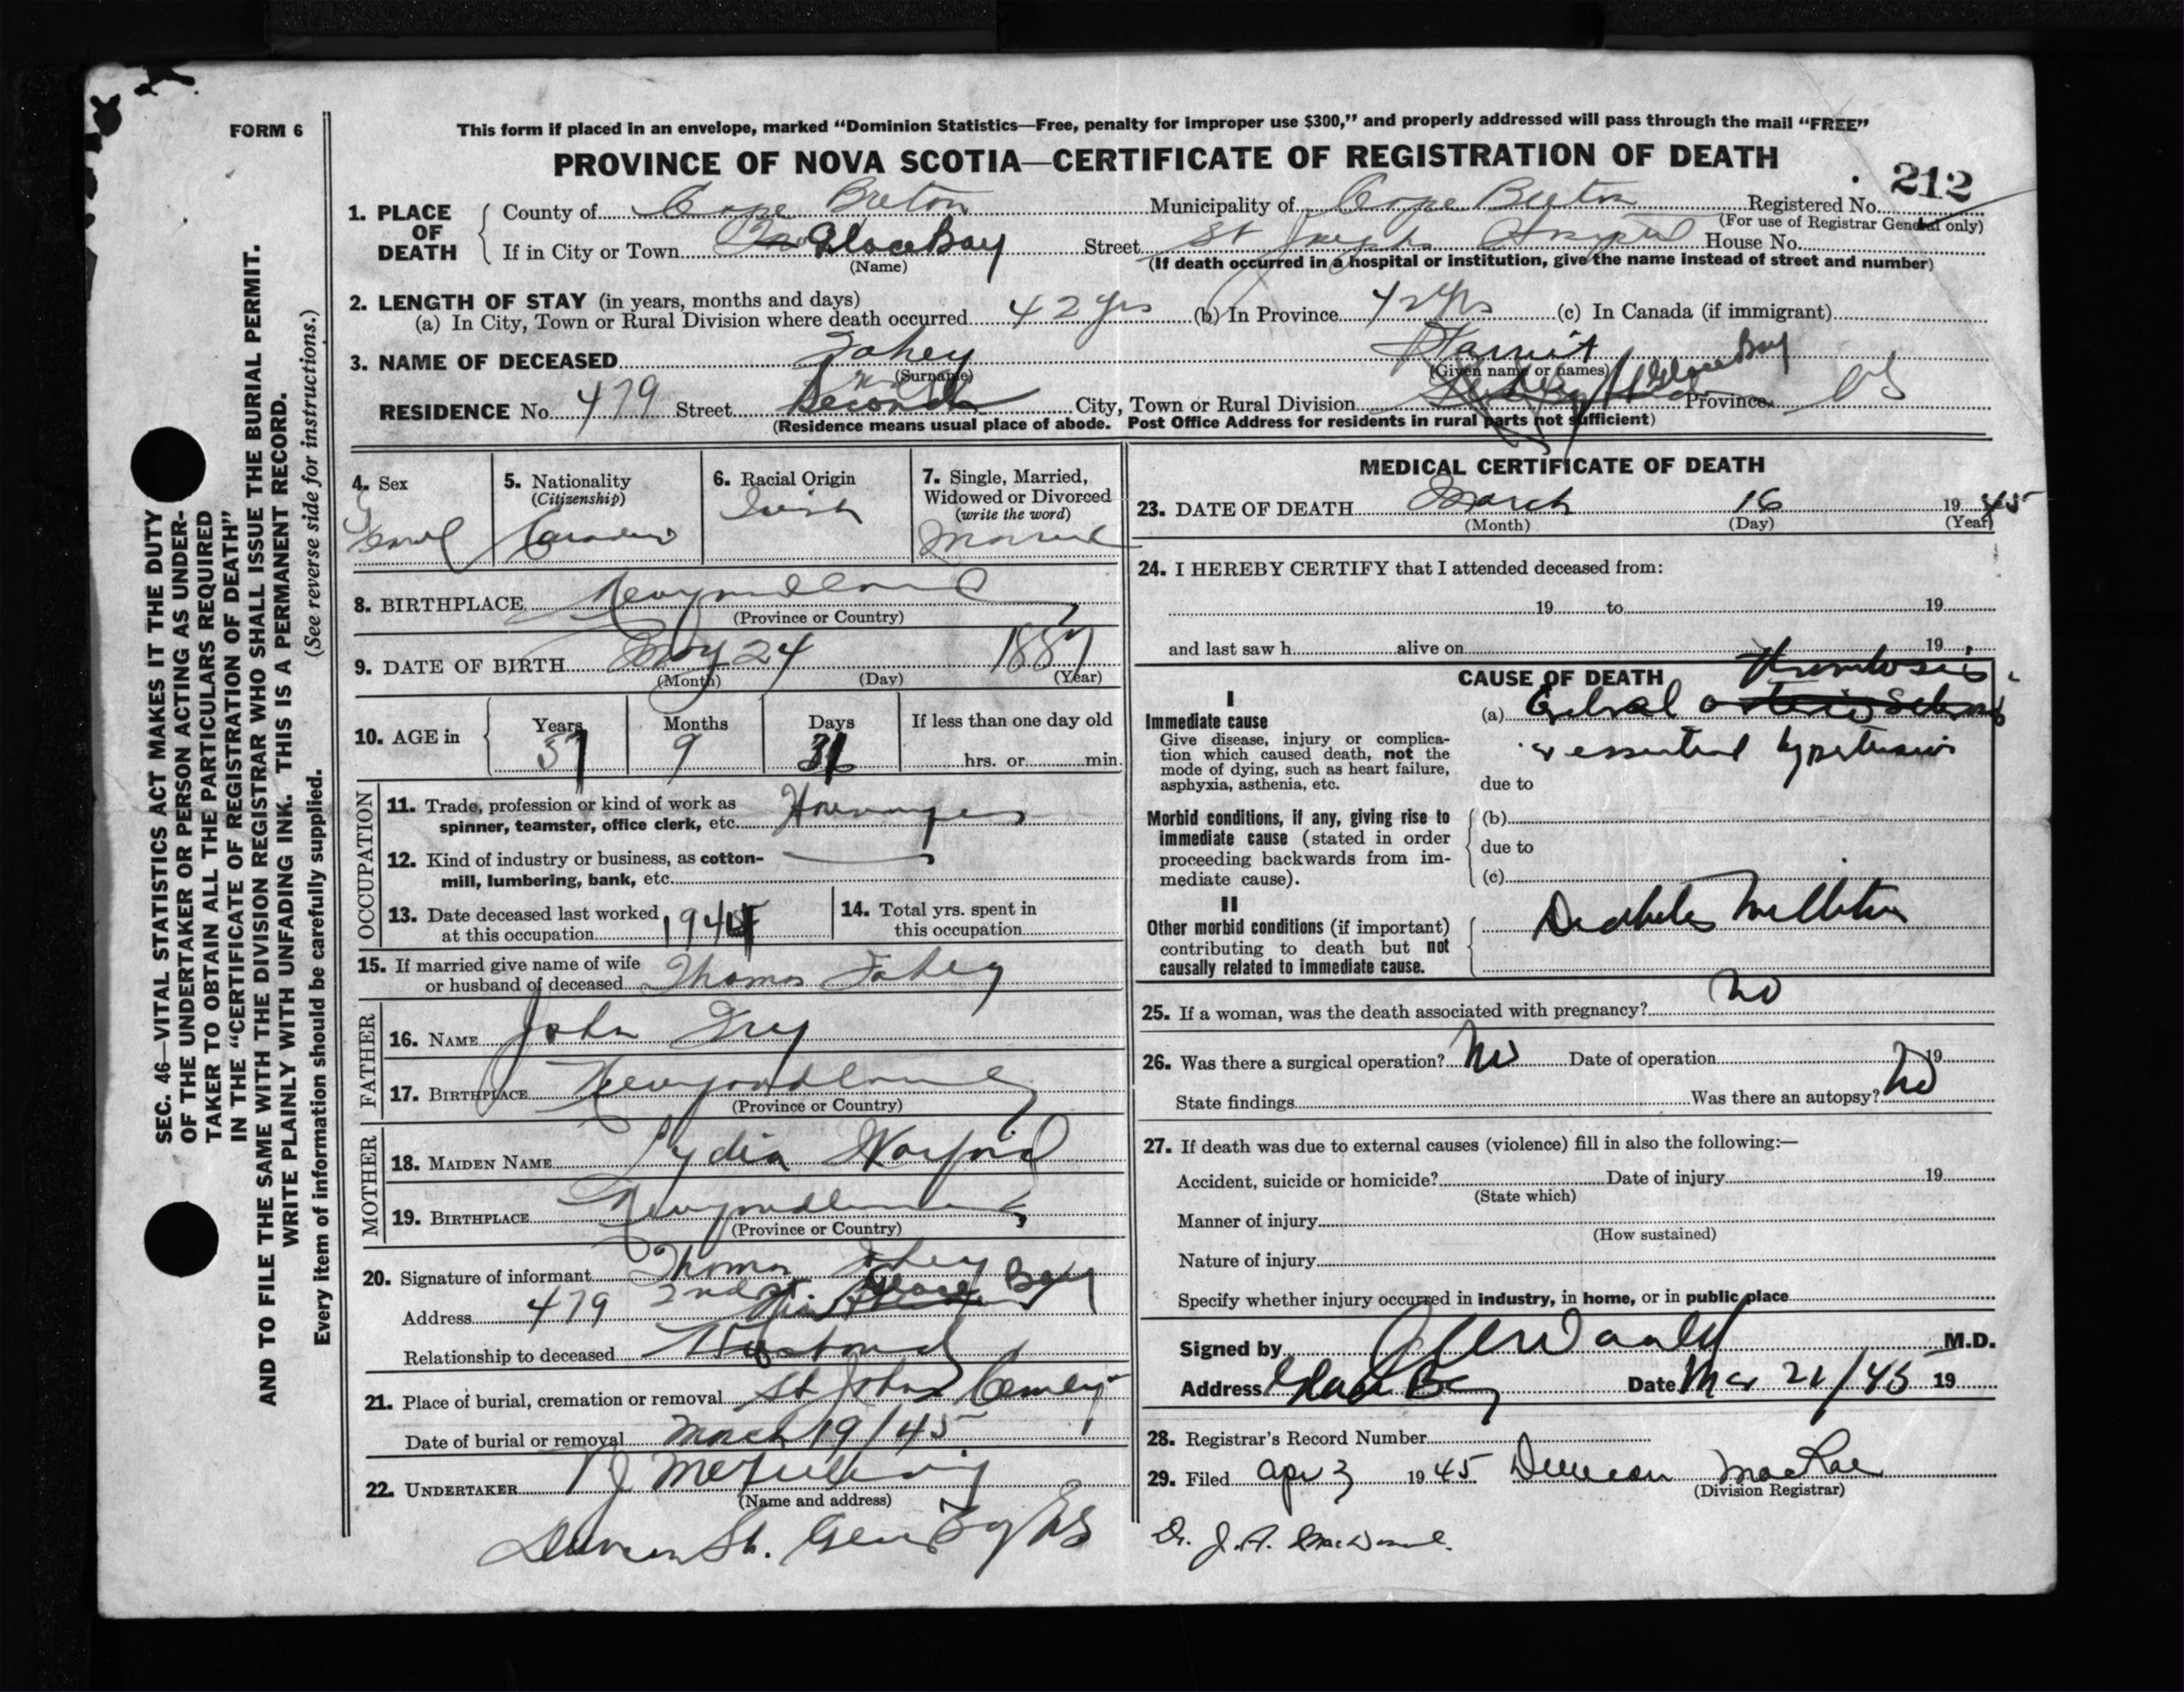 FORM 6
This form if placed in an envelope, marked “Dominion Statistics—Free, penalty for improper use $300,” and properly addressed will pass through the mail “FREE”
PROVINCE OF NOVA SCOTIA—CERTIFICATE OF REGISTRATION OF DEATH
212
1. PLACE OF DEATH
County of Cape Breton Municipality of Cape Breton Registered No.
(For use of Registrar General only)
If in City or Town Glace Bay Street St Josephs Hospital House No.
(Name) (If death occurred in a hospital or institution, give the name instead of street and number)
2. LENGTH OF STAY (in years, months and days)
(a) In City, Town or Rural Division where death occurred 42 yrs (b) In Province 42 yrs (c) In Canada (if immigrant)
3. NAME OF DECEASED Fahey
(Surname) (Given name or names)
RESIDENCE No. 479 Street Second City, Town or Rural Division Glace Bay Province NS
(Residence means usual place of abode. Post Office Address for residents in rural parts not sufficient)
4. Sex
5. Nationality (Citizenship)
6. Racial Origin Irish
7. Single, Married, Widowed or Divorced (write the word) Married
8. BIRTHPLACE Newfoundland
(Province or Country)
9. DATE OF BIRTH May 24 1887
(Month) (Day) (Year)
10. AGE in Years Months 9 Days If less than one day old
hrs. or min.
OCCUPATION
11. Trade, profession or kind of work as
spinner, teamster, office clerk, etc.
12. Kind of industry or business, as cotton-
mill, lumbering, bank, etc.
13. Date deceased last worked
at this occupation
14. Total yrs. spent in
this occupation
15. If married give name of wife
or husband of deceased Thomas Fahey
FATHER
16. NAME John
17. BIRTHPLACE Newfoundland
(Province or Country)
MOTHER
18. MAIDEN NAME Lydia
19. BIRTHPLACE Newfoundland
(Province or Country)
20. Signature of informant Thomas Fahey
Address 479 2nd St Glace Bay
Relationship to deceased Husband
21. Place of burial, cremation or removal St Johns
Date of burial or removal March 19/45
22. UNDERTAKER
(Name and address)
MEDICAL CERTIFICATE OF DEATH
23. DATE OF DEATH March 16 1945
(Month) (Day) (Year)
24. I HEREBY CERTIFY that I attended deceased from:
19 to 19
and last saw h alive on 19
CAUSE OF DEATH
I
Immediate cause
Give disease, injury or complica-
tion which caused death, not the
mode of dying, such as heart failure,
asphyxia, asthenia, etc.
(a) Cerebral thrombosis
& essential hypertension
due to
Morbid conditions, if any, giving rise to
immediate cause (stated in order
proceeding backwards from im-
mediate cause).
(b)
due to
(c)
II
Other morbid conditions (if important)
contributing to death but not
causally related to immediate cause.
Diabetes Mellitus
25. If a woman, was the death associated with pregnancy? No
26. Was there a surgical operation? No Date of operation 19
State findings Was there an autopsy? No
27. If death was due to external causes (violence) fill in also the following:—
Accident, suicide or homicide? Date of injury 19
(State which)
Manner of injury
(How sustained)
Nature of injury
Specify whether injury occurred in industry, in home, or in public place
Signed by M.D.
Address Glace Bay Date Mar 21/45 19
28. Registrar's Record Number
29. Filed Apr 3 1945 Duncan MacRae
(Division Registrar)
Dr. J. A. MacDonald.
SEC. 46—VITAL STATISTICS ACT MAKES IT THE DUTY
OF THE UNDERTAKER OR PERSON ACTING AS UNDER-
TAKER TO OBTAIN ALL THE PARTICULARS REQUIRED
IN THE “CERTIFICATE OF REGISTRATION OF DEATH”
AND TO FILE THE SAME WITH THE DIVISION REGISTRAR WHO SHALL ISSUE THE BURIAL PERMIT.
WRITE PLAINLY WITH UNFADING INK. THIS IS A PERMANENT RECORD.
Every item of information should be carefully supplied. (See reverse side for instructions.)